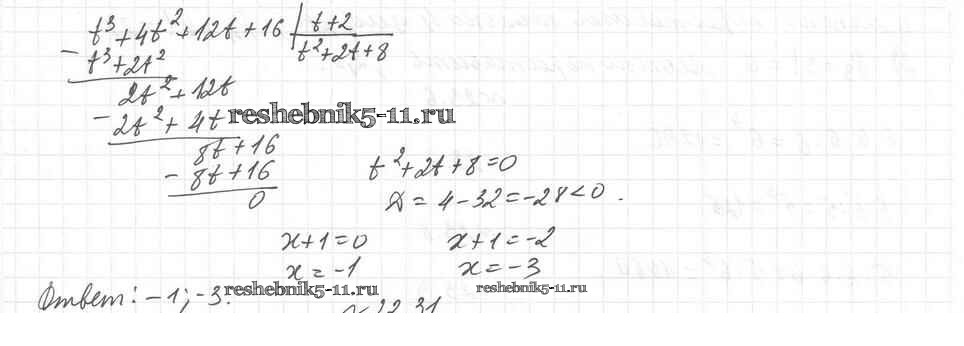 t³+4t²+12t+16 | t+2
− t³+2t² t²+2t+8
2t²+12t
− 2t²+4t reshebnik5-11.ru
8t+16
− 8t+16 t²+2t+8=0
0 D=4−32=−28<0.
x+1=0 x+1=−2
x=−1 x=−3
Ответ: −1; −3. reshebnik5-11.ru reshebnik5-11.ru